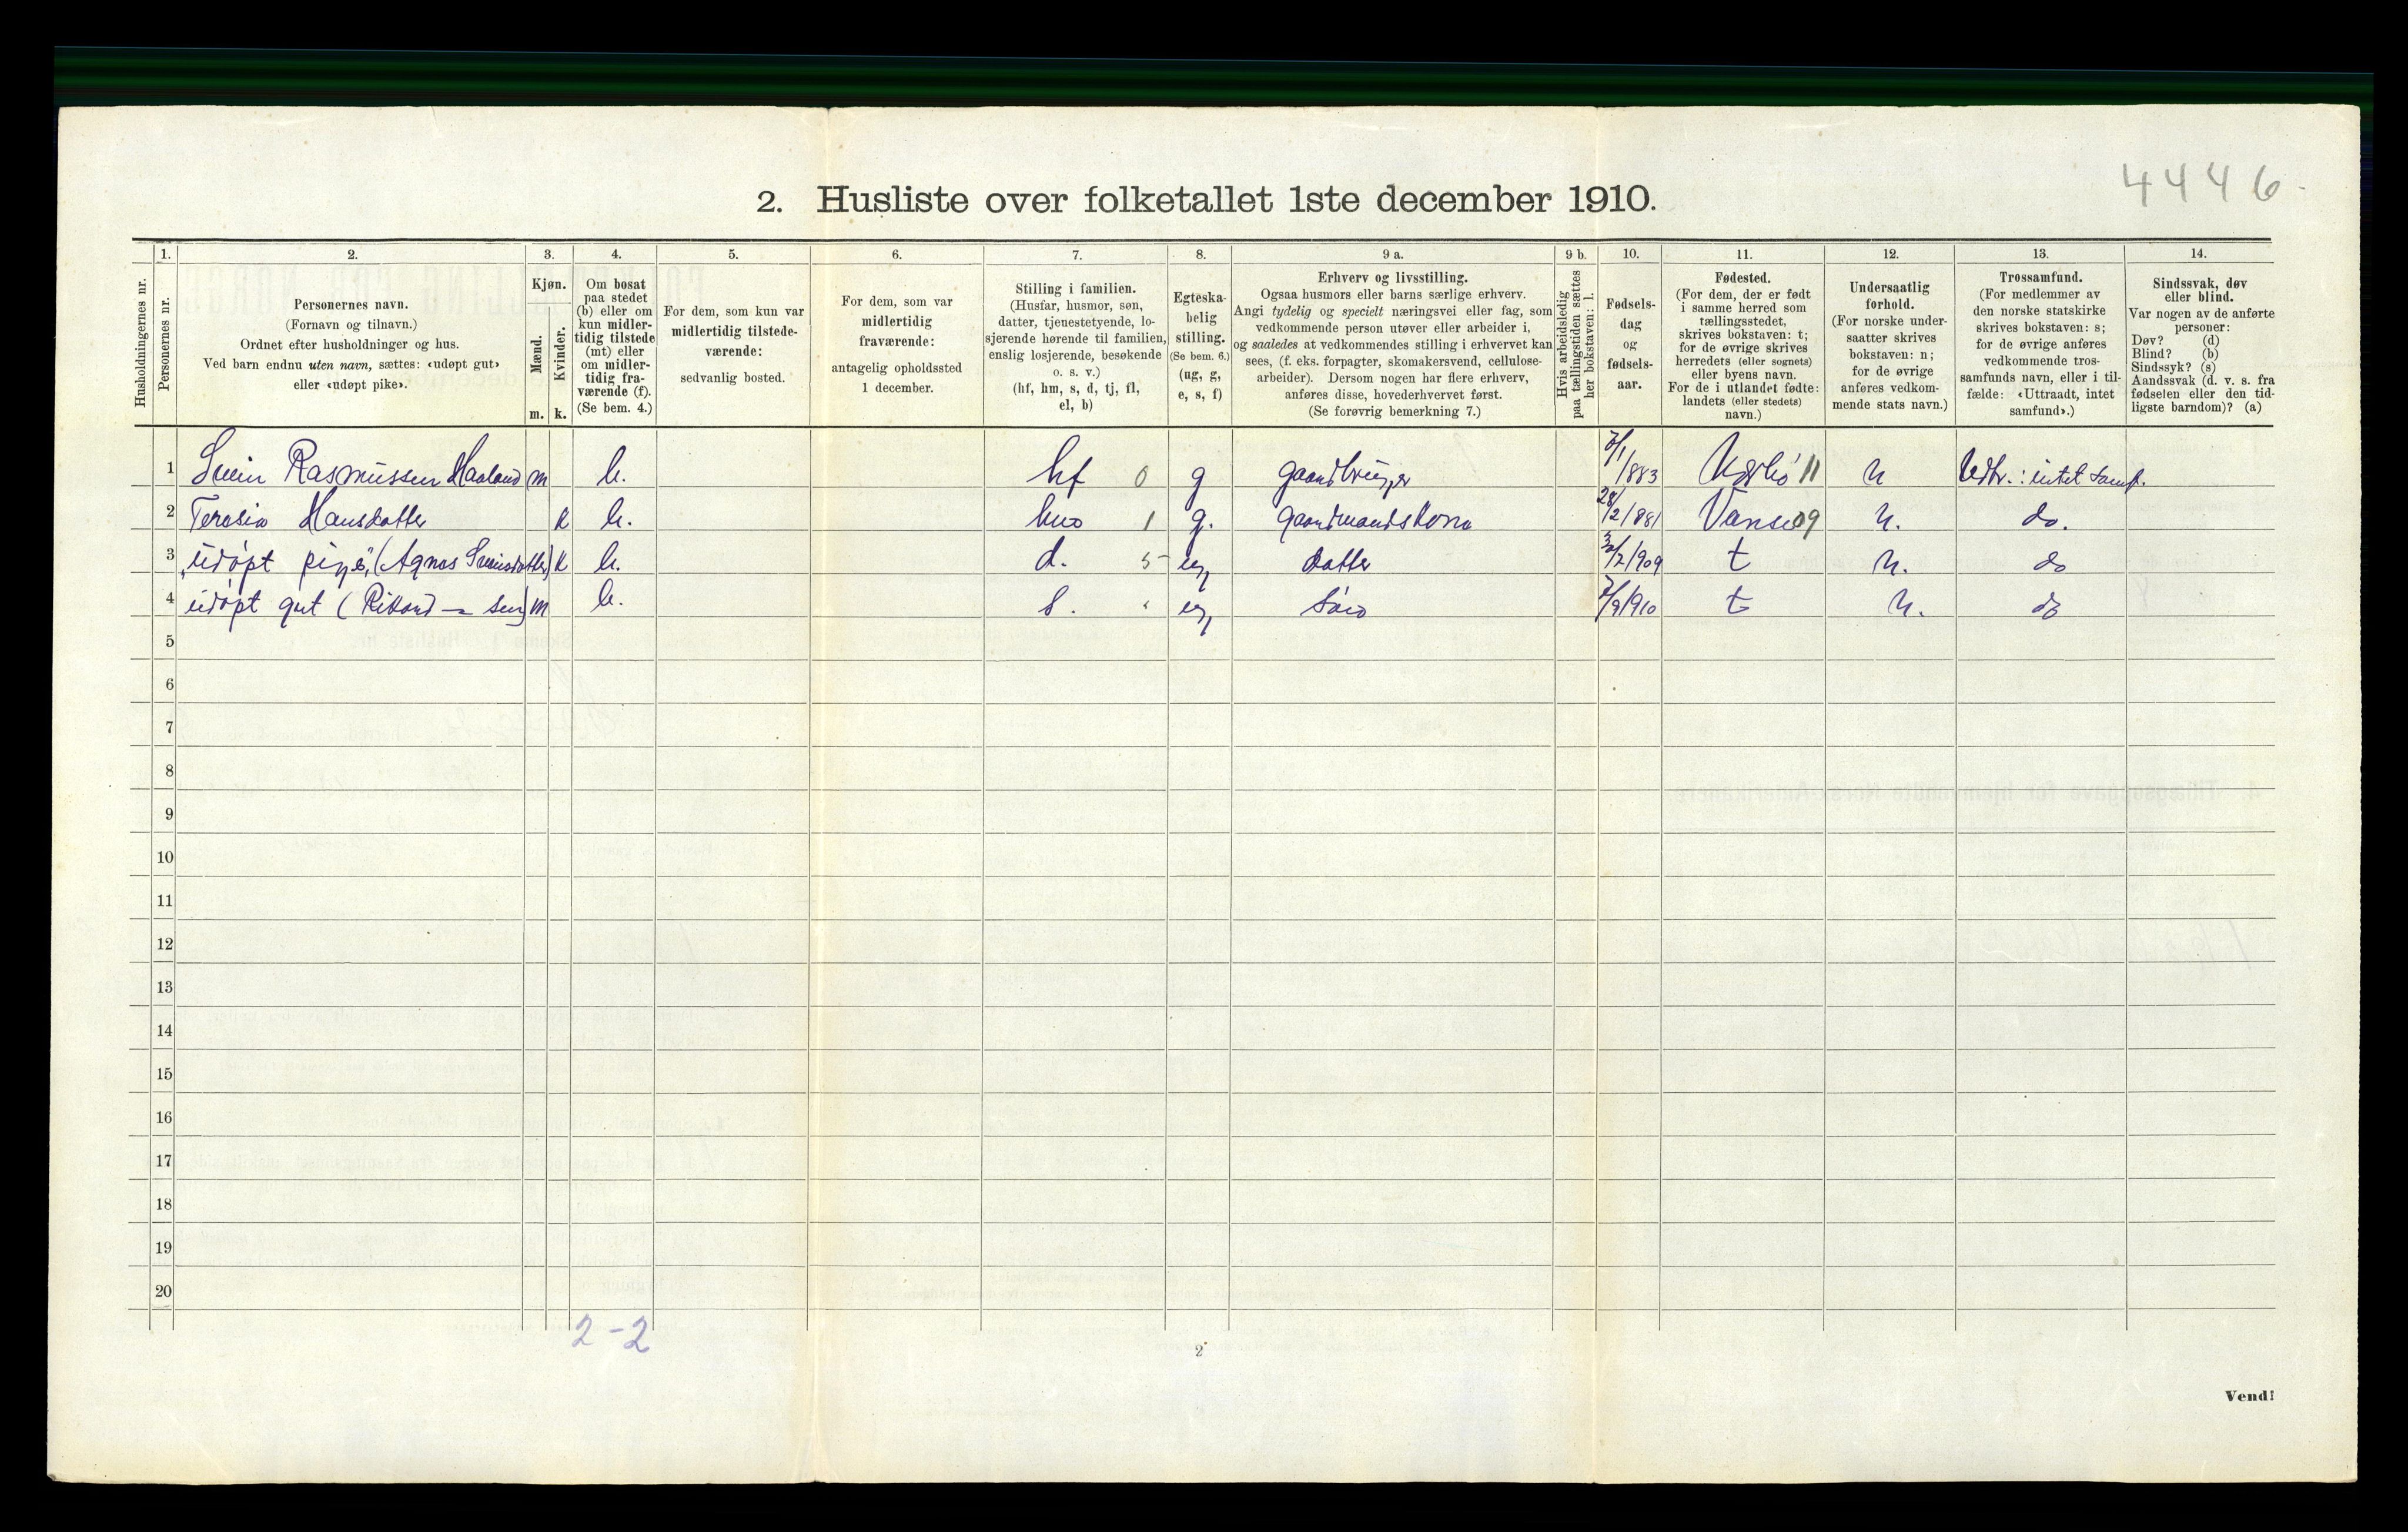 4446.
2. Husliste over folketallet 1ste december 1910.
Husholdningernes nr.
1.
Personernes nr.
2.
Personernes navn.
(Fornavn og tilnavn.)
Ordnet efter husholdninger og hus.
Ved barn endnu uten navn, sættes: «udøpt gut»
eller «udøpt pike».
3.
Kjøn.
Mænd.
Kvinder.
m. k.
4.
Om bosat
paa stedet
(b) eller om
kun midler-
tidig tilstede
(mt) eller
om midler-
tidig fra-
værende (f).
(Se bem. 4.)
5.
For dem, som kun var
midlertidig tilstede-
værende:
sedvanlig bosted.
6.
For dem, som var
midlertidig
fraværende:
antagelig opholdssted
1 december.
7.
Stilling i familien.
(Husfar, husmor, søn,
datter, tjenestetyende, lo-
sjerende hørende til familien,
enslig losjerende, besøkende
o. s. v.)
(hf, hm, s, d, tj, fl,
el, b)
8.
Egteska-
belig
stilling.
(Se bem. 6.)
(ug, g,
e, s, f)
9 a.
Erhverv og livsstilling.
Ogsaa husmors eller barns særlige erhverv.
Angi tydelig og specielt næringsvei eller fag, som
vedkommende person utøver eller arbeider i,
og saaledes at vedkommendes stilling i erhvervet kan
sees, (f. eks. forpagter, skomakersvend, cellulose-
arbeider). Dersom nogen har flere erhverv,
anføres disse, hovederhvervet først.
(Se forøvrig bemerkning 7.)
9 b.
Hvis arbeidsledig
paa tællingstiden sættes
her bokstaven: l.
10.
Fødsels-
dag
og
fødsels-
aar.
11.
Fødested.
(For dem, der er født
i samme herred som
tællingsstedet,
skrives bokstaven: t;
for de øvrige skrives
herredets (eller sognets)
eller byens navn.
For de i utlandet fødte:
landets (eller stedets)
navn.)
12.
Undersaatlig
forhold.
(For norske under-
saatter skrives
bokstaven: n;
for de øvrige
anføres vedkom-
mende stats navn.)
13.
Trossamfund.
(For medlemmer av
den norske statskirke
skrives bokstaven: s;
for de øvrige anføres
vedkommende tros-
samfunds navn, eller i til-
fælde: «Uttraadt, intet
samfund».)
14.
Sindssvak, døv
eller blind.
Var nogen av de anførte
personer:
Døv? (d)
Blind? (b)
Sindssyk? (s)
Aandssvak (d. v. s. fra
fødselen eller den tid-
ligste barndom)? (a)
1 Svein Rasmussen Haaland m b. hf 0 g gaardbruger /1 1883 11 n Udtr.: intet samf.
2 Hansdatter k b. 1 g. gaardmandskona 28/2/881 Vanse 09 n. do.
3 udøpt pige (Agnes Sveinsdatter) k b. d. 5 ug datter /2/909 t n. do
4 udøpt gut ( sen) m b. s. ug Søn 7/9/910 t n. do
5
6
7
8
9
10
11
12
13
14
15
16
17
18
19
20
2-2
2
Vend!